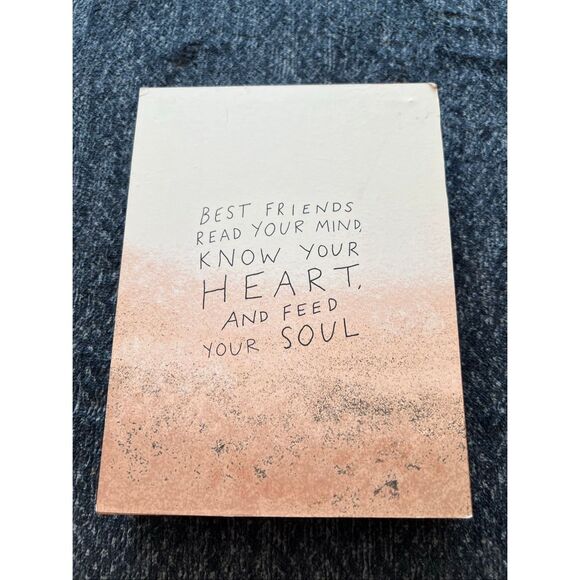 BEST FRIENDS
READ YOUR MIND,
KNOW YOUR
HEART,
AND FEED
YOUR SOUL